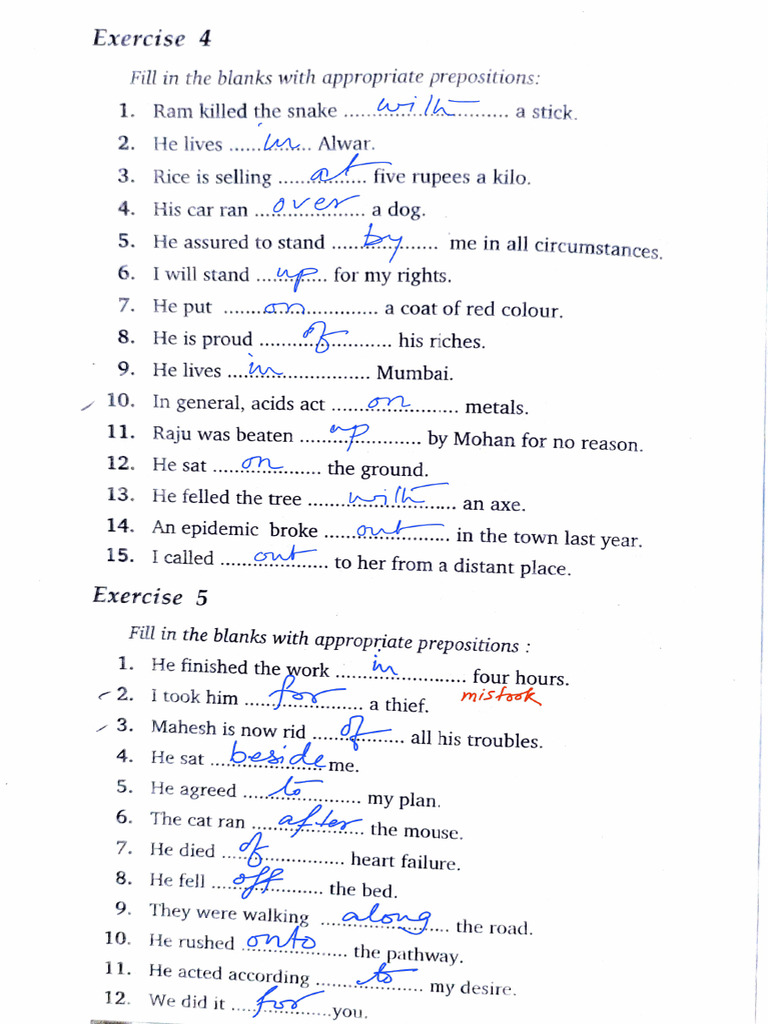 Exercise 4
Fill in the blanks with appropriate prepositions:
1. Ram killed the snake ......with......... a stick.
2. He lives ......in... Alwar.
3. Rice is selling ......at...... five rupees a kilo.
4. His car ran ...over......... a dog.
5. He assured to stand ......by...... me in all circumstances.
6. I will stand ...up... for my rights.
7. He put ......on......... a coat of red colour.
8. He is proud ......of......... his riches.
9. He lives ...in............... Mumbai.
10. In general, acids act ......on......... metals.
11. Raju was beaten ......up......... by Mohan for no reason.
12. He sat ...on......... the ground.
13. He felled the tree ......with...... an axe.
14. An epidemic broke ......out...... in the town last year.
15. I called ......out...... to her from a distant place.
Exercise 5
Fill in the blanks with appropriate prepositions :
1. He finished the work ......in......... four hours.
2. I took him ......for...... a thief. mistook
3. Mahesh is now rid ......of...... all his troubles.
4. He sat ...beside... me.
5. He agreed ......to......... my plan.
6. The cat ran ...after...... the mouse.
7. He died ...of............ heart failure.
8. He fell ...off......... the bed.
9. They were walking ...along... the road.
10. He rushed ...onto...... the pathway.
11. He acted according ......to...... my desire.
12. We did it ...for...... you.